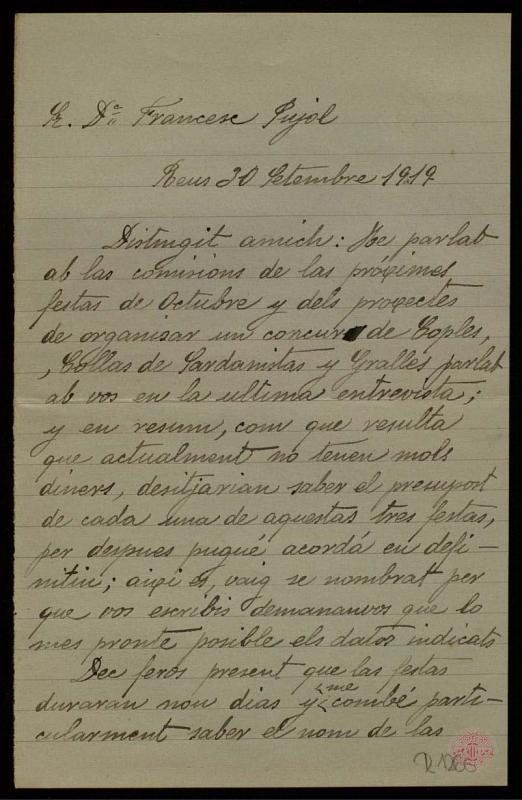 Sr. Dn. Francesc Pujol
Reus 30 Setembre 1919
Distingit amich: He parlat
ab las comisions de las próximes
festas de Octubre y dels projectes
de organisar un concurs de Coples,
, Collas de Sardanistas y Gralles parlat
ab vos en la ultima entrevista;
y en resum, com que resulta
que actualment no tenen mols
diners, desitjarian saber el presupost
de cada una de aquestas tres festas,
per despues pugué acordá en defi-
nitiu; aixi es, vaig se nombrat per
que vos escribis demananvos que lo
mes pronte posible els datos indicats
Dec feros present que las festas
duraran nou dias y me combé parti-
cularment saber el nom de las
R. 1266